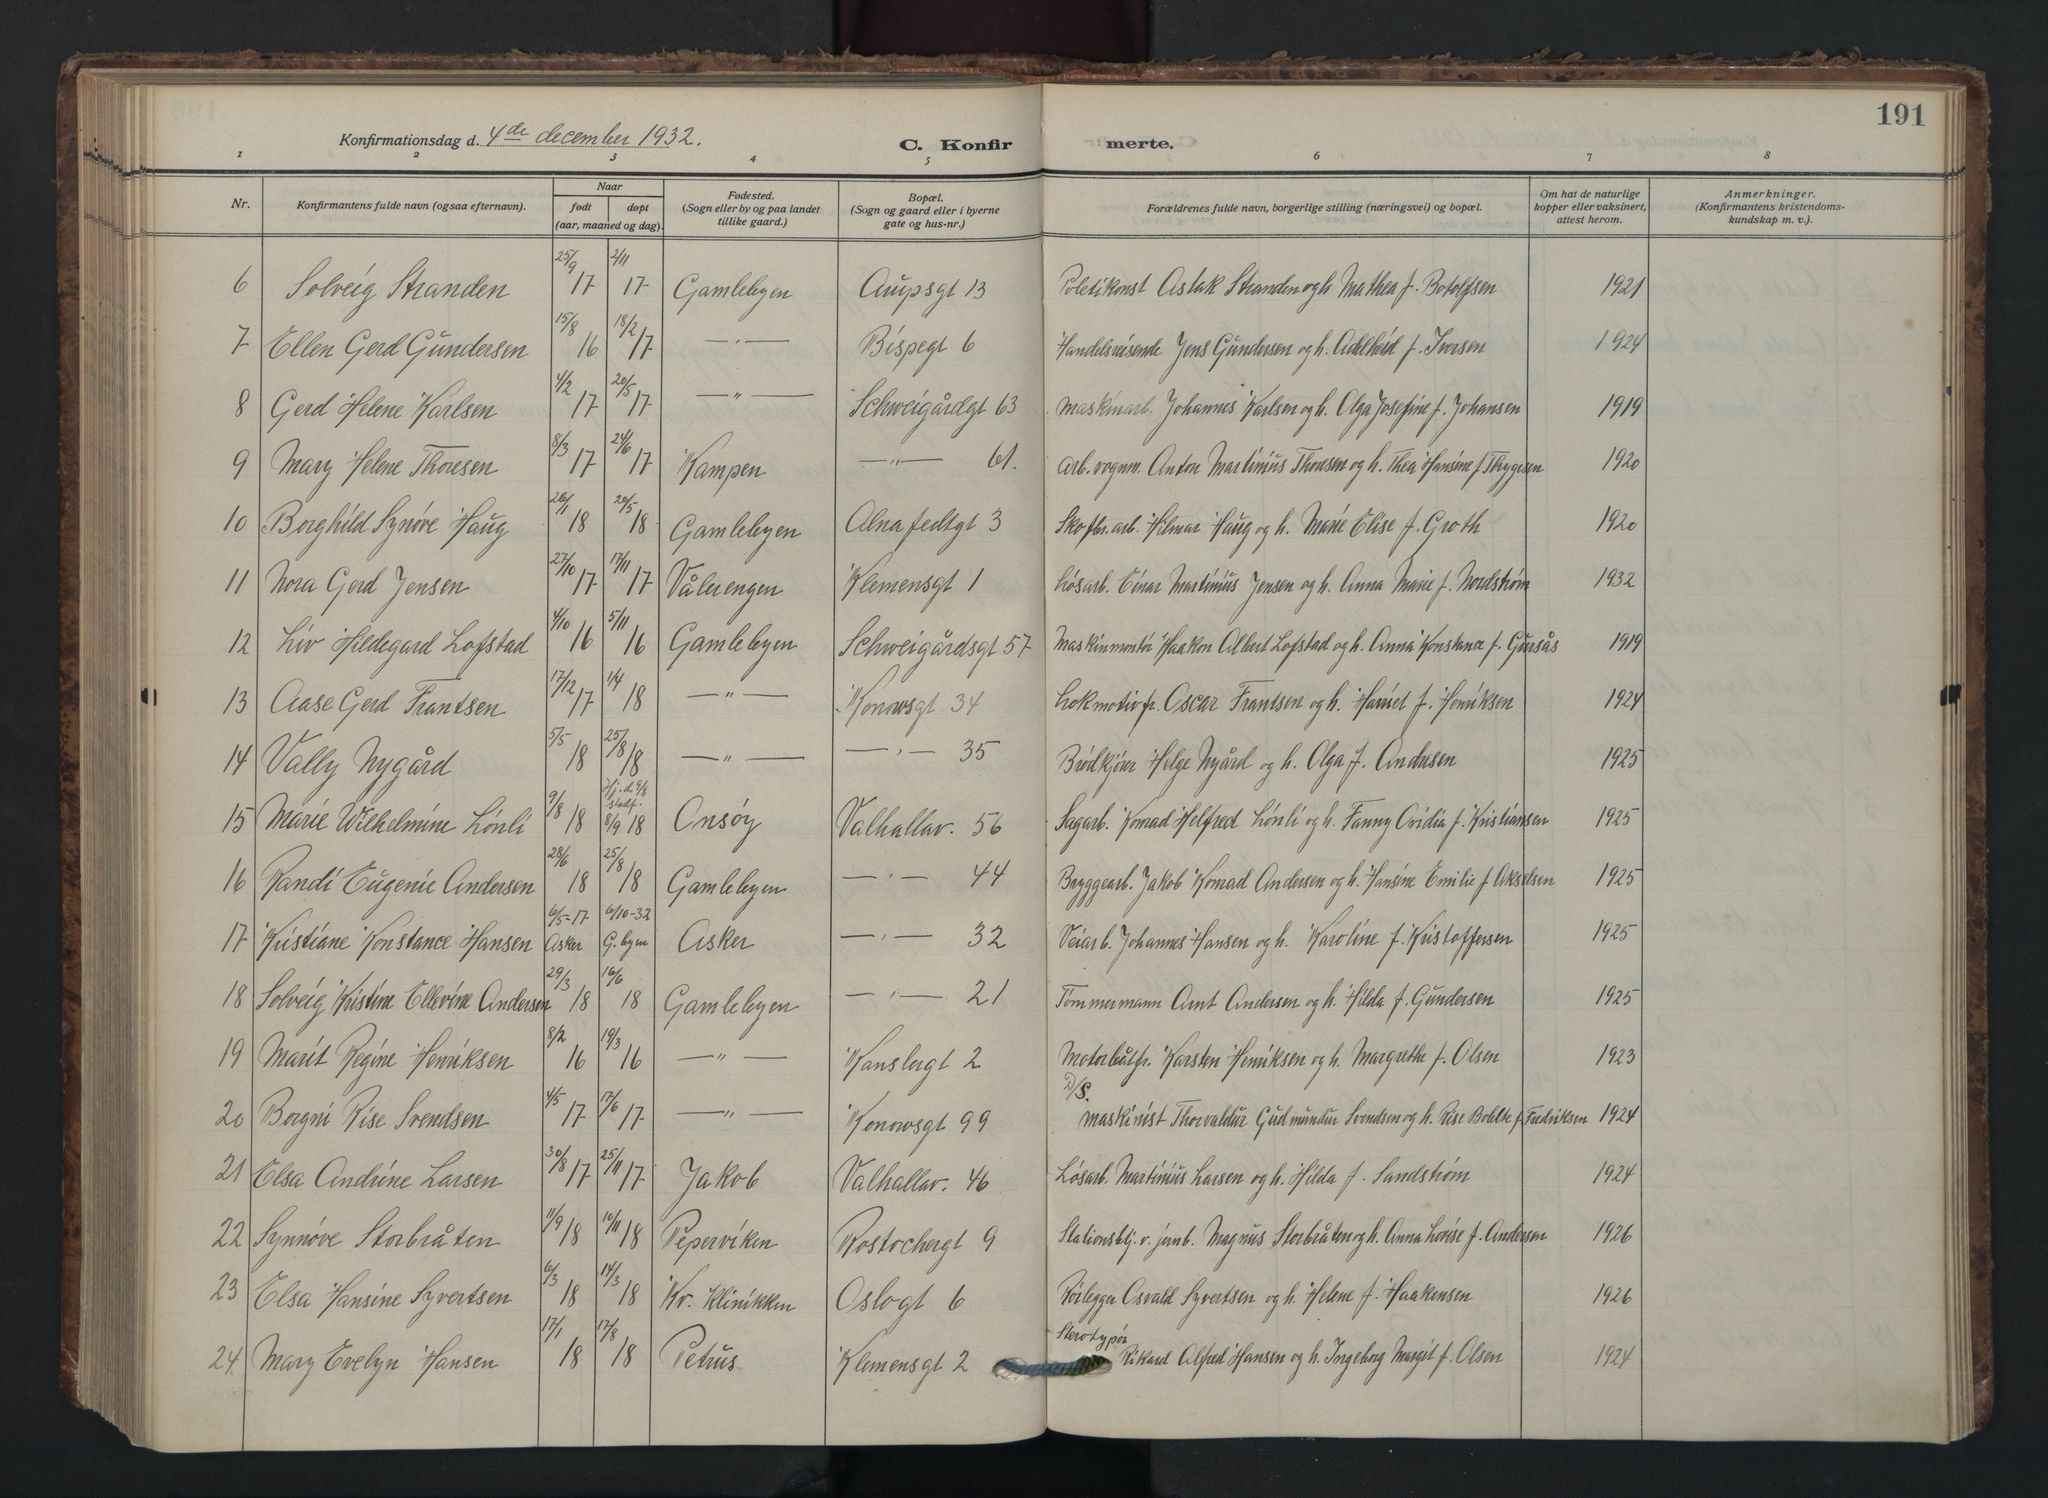 191
Konfirmationsdag d. 4de december 1932. C. Konfirmerte.
1 2 3 4 5 6 7 8
Nr. Konfirmantens fulde navn (ogsaa efternavn). Naar født døpt (aar, maaned og dag) Fødested. (Sogn eller by og paa landet tillike gaard.) Bopæl. (Sogn og gaard eller i byerne gate og hus-nr.) Forældrenes fulde navn, borgerlige stilling (næringsvei) og bopæl. Om hat de naturlige kopper eller vaksinert, attest herom. Anmerkninger. (Konfirmantens kristendomskundskap m. v.).
6 Solveig Stranden 25/9 17 2/11 17 Gamlebyen Arupsgt 13 Politikonst Aslak Stranden og h. Mathea f. Botolfsen 1921
7 Ellen Gerd Gundersen 15/8 16 18/2 17 — " — Bispegt 6 Handelsreisende Jens Gundersen og h. Adelheid f. Iversen 1924
8 Gerd Helene Karlsen 4/2 17 20/5 17 — " — Schweigårdgt 63 Maskinarb. Johannes Karlsen og h. Olga Josefine f. Johansen 1919
9 Mary Helene Thoresen 8/3 17 24/6 17 Kampen — " — 61. Arb. vognm. Anton Martinius Thoresen og h. Thea Hansine f. Thygesen 1920
10 Borghild Synøve Haug 26/1 18 20/5 18 Gamlebyen Alnafedtgt 3 Skofbr. arb. Hilmar Haug og h. Marie Elise f. Groth 1920
11 Nora Gerd Jensen 27/10 17 17/11 17 Vålerengen Klemensgt 1 Løsarb. Einar Martinius Jensen og h. Anna Marie f. Nordstrøm 1932
12 Liv Hildegard Lofstad 4/10 16 5/11 16 Gamlebyen Schweigårdsgt 57 Maskinmontør Haakon Albert Lofstad og h. Anna Konstance f. Gursås 1919
13 Aase Gerd Frantsen 17/12 17 1/4 18 — " — Konowsgt 34 Lokmotivfr. Oscar Frantsen og h. Harriet f. Henriksen 1924
14 Vally Nygård 5/5 18 25/8 18 — " — — " — 35 Brødkjører Helge Nygård og h. Olga f. Andersen 1925
15 Marie Wilhelmine Lönli 9/8 18 Hj. d. 9/8 stadf. 8/9 18 Onsöy Valhallav. 56 Sagarb. Konrad Helfred Lönli og h. Fanny Ovidia f. Kristiansen 1925
16 Randi Eugenie Andersen 28/6 18 25/8 18 Gamlebyen — " — 44 Bryggearb. Jakob Konrad Andersen og h. Hansine Emilie f. Akselsen 1925
17 Kristiane Konstance Hansen 6/5-17 Asker 6/10-32 G. byen Asker — " — 32 Veiarb. Johannes Hansen og h. Karoline f. Kristoffersen 1925
18 Solveig Kristine Ellevine Andersen 29/3 18 16/6 18 Gamlebyen — " — 21 Tømmermann Arnt Andersen og h. Hilda f. Gundersen 1925
19 Marit Regine Henriksen 8/2 16 19/3 16 — " — Kanslergt 2 Motorbåtfr. Karsten Henriksen og h. Margrethe f. Olsen 1923
20 Borgni Rise Svendsen 4/5 17 17/6 17 — " — Konowsgt 99 D/S. maskinist Thorvaldur Gudmundur Svendsen og h. Rise Bohlte f. Fredriksen 1924
21 Elsa Andrine Larsen 30/8 17 25/11 17 Jakob Valhallav. 46 Løsarb. Martinius Larsen og h. Hilda f. Sandstrøm 1924
22 Synnøve Storbråten 11/9 18 10/11 18 Pepervïken Rostochergt 9 Stationsbtj. v. jernb. Magnus Storbråten og h. Anna Lovise f. Andersen 1926
23 Elsa Hansine Syvertsen 6/3 18 14/3 18 Kv. klinikken Oslogt 6 Rørlegger Osvald Syvertsen og h. Helene f. Haakensen 1926
24 Mary Evelyn Hansen 17/1 18 17/8 18 Petrus Klemensgt 2 Sterotypør Rikard Alfred Hansen og h. Ingeborg Margit f. Olsen 1924